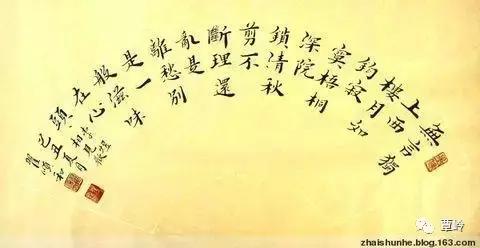 無言獨
上西
樓月如
鈎寂
寞梧桐
深院
鎖清秋
剪不
斷理還
亂是
離愁別
是一
般滋味
在心
頭
李煜
相見歡
己丑夏月
覃岭
zhaishunhe.blog.163.com